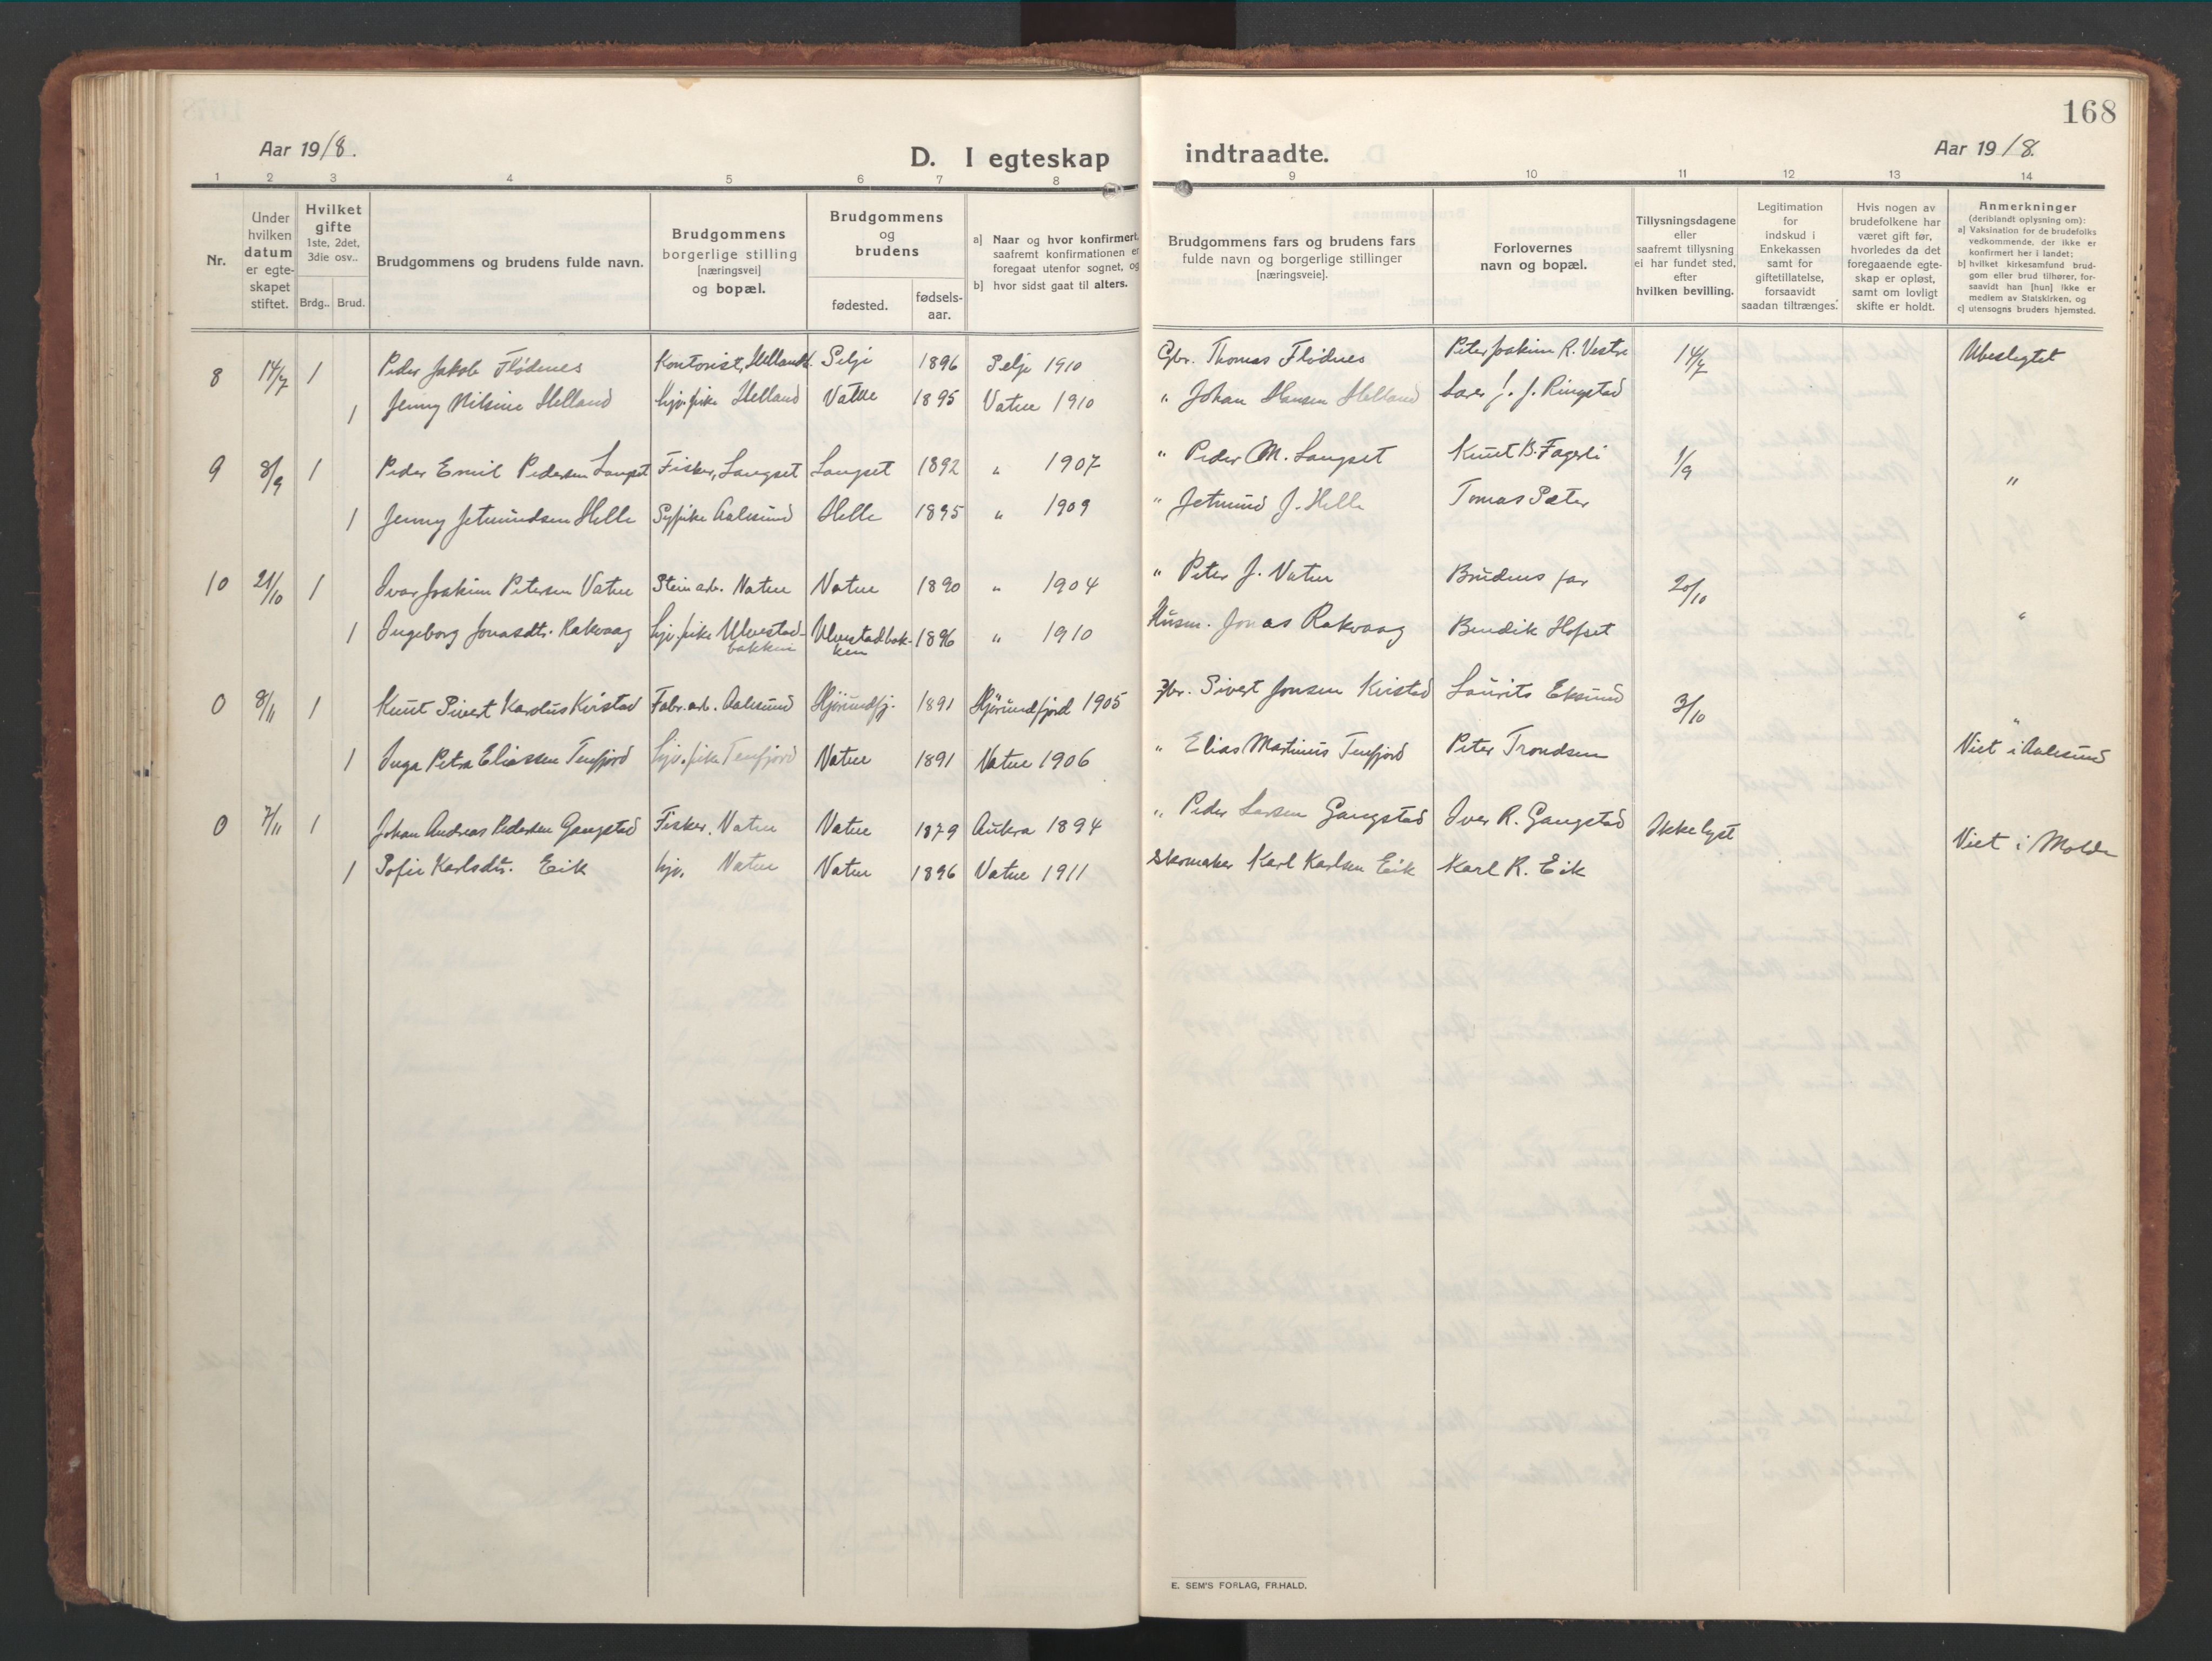 168
Aar 1918.
D. I egteskap indtraadte.
Aar 1918.
1 2 3 4 5 6 7 8 9 10 11 12 13 14
Nr.
Under hvilken datum er egteskapet stiftet.
Hvilket gifte 1ste, 2det, 3die osv..
Brdg.. Brud.
Brudgommens og brudens fulde navn.
Brudgommens borgerlige stilling [næringsvei] og bopæl.
Brudgommens og brudens
fødested. fødsels-aar.
a] Naar og hvor konfirmert, saafremt konfirmationen er foregaat utenfor sognet, og
b] hvor sidst gaat til alters.
Brudgommens fars og brudens fars fulde navn og borgerlige stillinger [næringsveie].
Forlovernes navn og bopæl.
Tillysningsdagene eller saafremt tillysning ei har fundet sted, efter hvilken bevilling.
Legitimation for indskud i Enkekassen samt for giftetillatelse, forsaavidt saadan tiltrænges.
Hvis nogen av brudefolkene har været gift før, hvorledes da det foregaaende egteskap er opløst, samt om lovligt skifte er holdt.
Anmerkninger (deriblandt oplysning om):
a] Vaksination for de brudefolks vedkommende, der ikke er konfirmert her i landet;
b] hvilket kirkesamfund brudgom eller brud tilhører, forsaavidt han [hun] ikke er medlem av Statskirken, og
c] utensogns bruders hjemsted.
8 14/7 1 Peder Jakob Flødenes Kontorist, Helland. Selje 1896 Selje 1910 Gbr. Thomas Flødnes Peter Joakim R. Vestre 14/7 Ubeslegtet
1 Jenny Nilsine Helland hjv. pike Helland Vatne 1895 Vatne 1910 " Johan Hansen Helland Lærer J. J. Ringstad
9 8/9 1 Peder Emil Pedersen Langset Fisker, Langset Langset 1892 " 1907 " Peder M. Langset Knut B. Fagerli 1/9 "
1 Jenny Jetmundsen Helle Sypike Aalesund Helle 1895 " 1909 " Jetmund J. Helle Tomas Sæter
10 21/10 1 Ivar Joakim Petersen Vatne Stein arb. Vatne Vatne 1890 " 1904 " Peter J. Vatne Brudens far 20/10
1 Ingeborg Jonasdtr. Rakvaag hjv. pike Ulvestad-bakken Ulvestadbak-ken 1896 " 1910 Husm. Jonas Rakvaag Bendik Hofset "
0 8/11 1 Knut Sivert Karolus Kvistad Fabr. arb. Aalesund Hjørundfj. 1891 Hjørundfjord 1905 Gbr. Sivert Jonsen Kvistad Laurits Eksund 3/10
1 Inga Petra Eliassen Tenfjord hjv. pike Tenfjord Vatne 1891 Vatne 1906 " Elias Martinus Tenfjord Peter Trondsen " Viet i Aalesund
0 7/11 1 Johan Andreas Pedersen Gangstad Fisker. Vatne Vatne 1879 Aukra 1894 " Peder Larsen Gangstad Iver R. Gangstad Ikke lyst Viet i Molde
1 Sofie Karlsdtr. Eik hjv. Vatne Vatne 1896 Vatne 1911 Skomaker Karl Karlsen Eik Karl R. Eik
E. SEM'S FORLAG, FR.HALD.